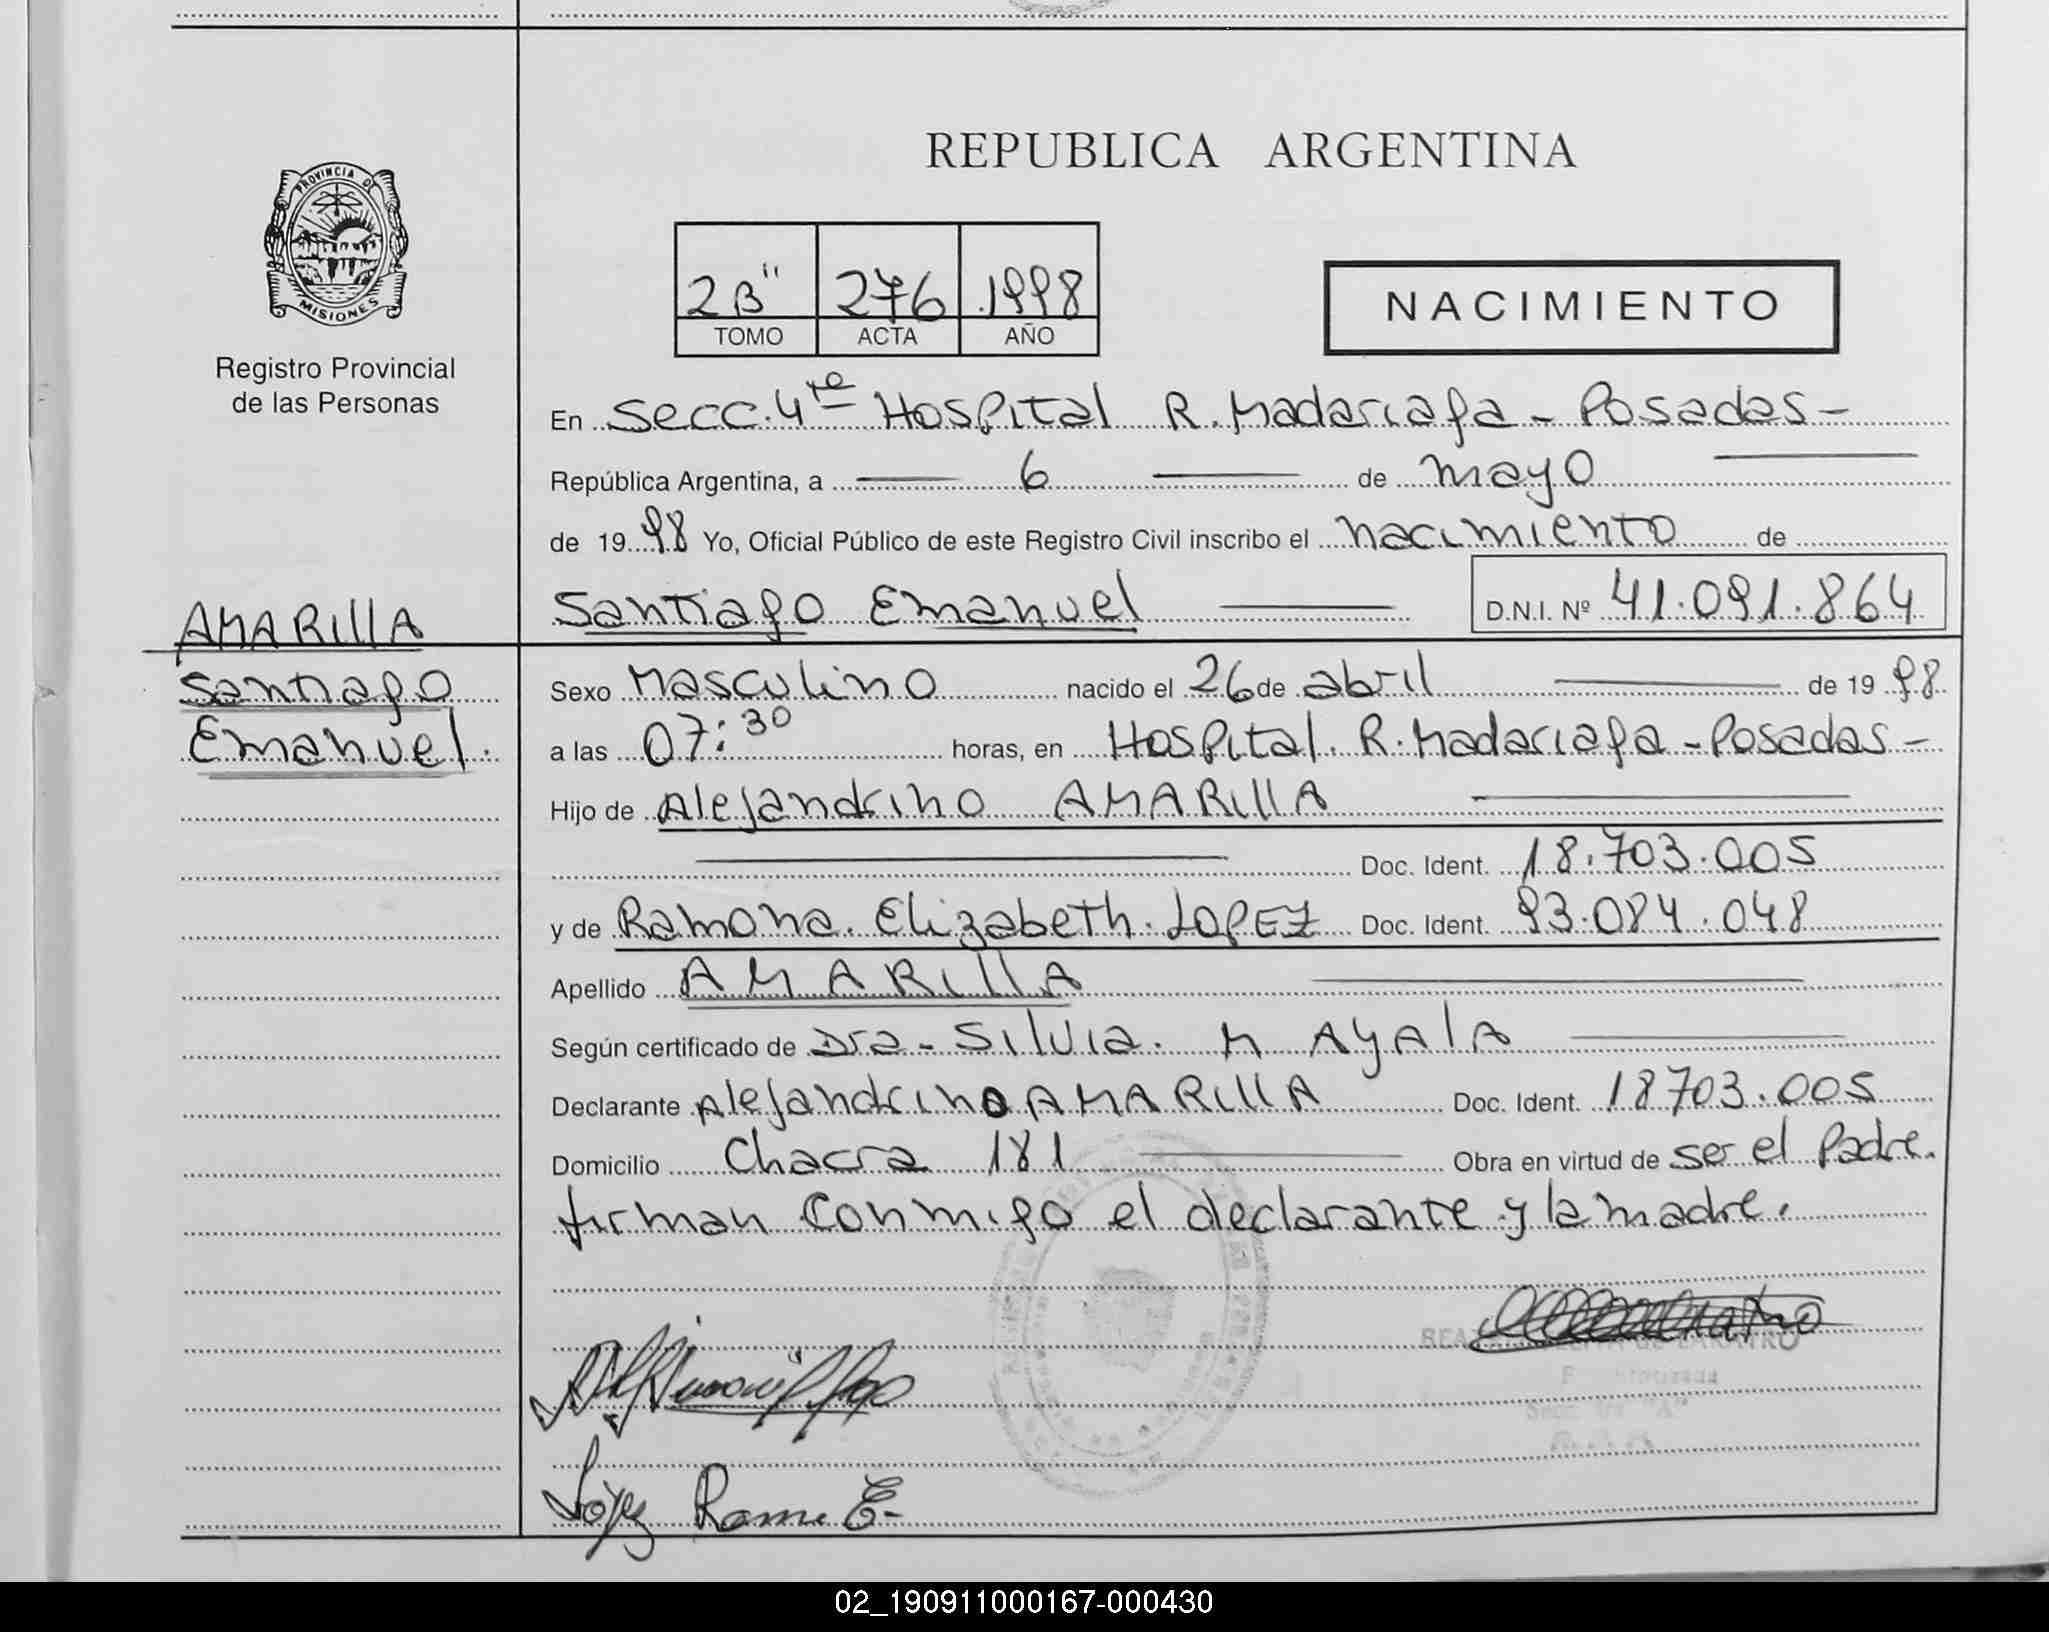 PROVINCIA DE
MISIONES
Registro Provincial
de las Personas
REPUBLICA ARGENTINA
2B" 276 1998
TOMO ACTA AÑO
NACIMIENTO
En Secc. 4ta Hospital R. Madariaga - Posadas -
República Argentina, a 6 de mayo
de 1998 Yo, Oficial Público de este Registro Civil inscribo el nacimiento de
Santiago Emanuel D.N.I. Nº 41.091.864
AMARILLA
Santiago
Emanuel.
Sexo Masculino nacido el 26 de abril de 1998
a las 07:30 horas, en Hospital. R. Madariaga - Posadas -
Hijo de Alejandrino AMARILLA
Doc. Ident. 18.703.005
y de Ramona. Elizabeth. LOPEZ Doc. Ident. 93.084.048
Apellido AMARILLA
Según certificado de Dra - Silvia. M AYALA
Declarante Alejandrino AMARILLA Doc. Ident. 18703.005
Domicilio Chacra 181 Obra en virtud de ser el Padre.
firman conmigo el declarante y la madre.
López Ramo E-
02_190911000167-000430